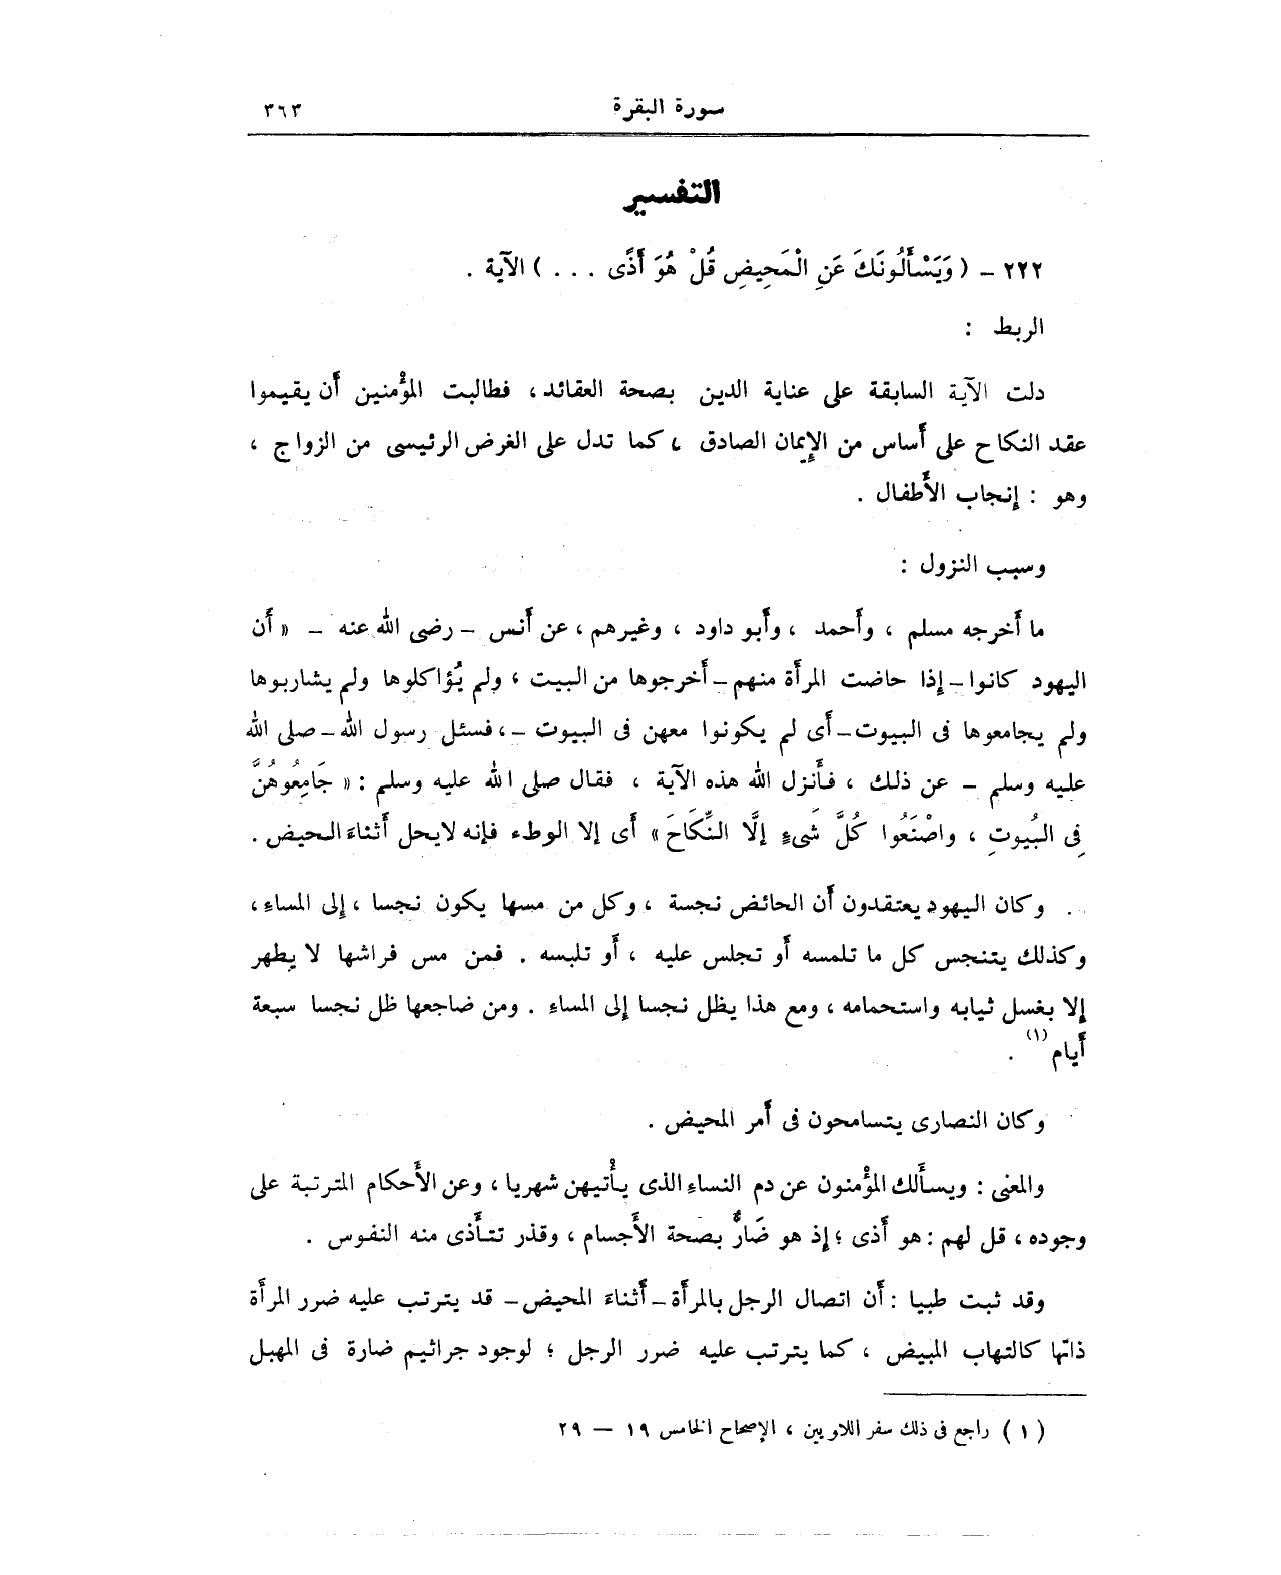 سورة البقرة ٣٦٣
التفسير
٢٢٢ - ( وَيَسْأَلُونَكَ عَنِ الْمَحِيضِ قُلْ هُوَ أَذًى . . . ) الآية .
الربط :
دلت الآية السابقة على عناية الدين بصحة العقائد ، فطالبت المؤْمنين أَن يقيموا
عقد النكاح على أَساس من الإِيمان الصادق ، كما تدل على الغرض الرئيسى من الزواج ،
وهو : إِنجاب الأَطفال .
وسبب النزول :
ما أَخرجه مسلم ، وأَحمد ، وأَبو داود ، وغيرهم ، عن أَنس - رضى الله عنه - « أَن
اليهود كانوا - إِذا حاضت المرأَة منهم - أَخرجوها من البيت ، ولم يُؤاكلوها ولم يشاربوها
ولم يجامعوها فى البيوت - أَى لم يكونوا معهن فى البيوت - ، فسئل رسول الله - صلى الله
عليه وسلم - عن ذلك ، فأَنزل الله هذه الآية ، فقال صلى الله عليه وسلم : « جَامِعُوهُنَّ
فِى البُيوتِ ، واصْنَعُوا كُلَّ شَىءٍ إِلَّا النِّكَاحَ » أَى إلا الوطء فإنه لايحل أَثناءَ الحيض .
وكان اليهود يعتقدون أَن الحائض نجسة ، وكل من مسها يكون نجسا ، إِلى المساءِ ،
وكذلك يتنجس كل ما تلمسه أَو تجلس عليه ، أَو تلبسه . فمن مس فراشها لا يطهر
إِلا بغسل ثيابه واستحمامه ، ومع هذا يظل نجسا إِلى المساءِ . ومن ضاجعها ظل نجسا سبعة
أَيام (١) .
وكان النصارى يتسامحون فى أَمر المحيض .
والمعنى : ويسأَلك المؤْمنون عن دم النساءِ الذى يأْتيهن شهريا ، وعن الأَحكام المترتبة على
وجوده ، قل لهم : هو أَذى ؛ إِذ هو ضَارٌّ بصحة الأَجسام ، وقذر تتأَذى منه النفوس .
وقد ثبت طبيا : أَن اتصال الرجل بالمرأَة - أَثناءَ المحيض - قد يترتب عليه ضرر المرأَة
ذاتها كالتهاب المبيض ، كما يترتب عليه ضرر الرجل ؛ لوجود جراثيم ضارة فى المهبل
( ١ ) راجع فى ذلك سفر اللاويين ، الإصحاح الخامس ١٩ – ٢٩